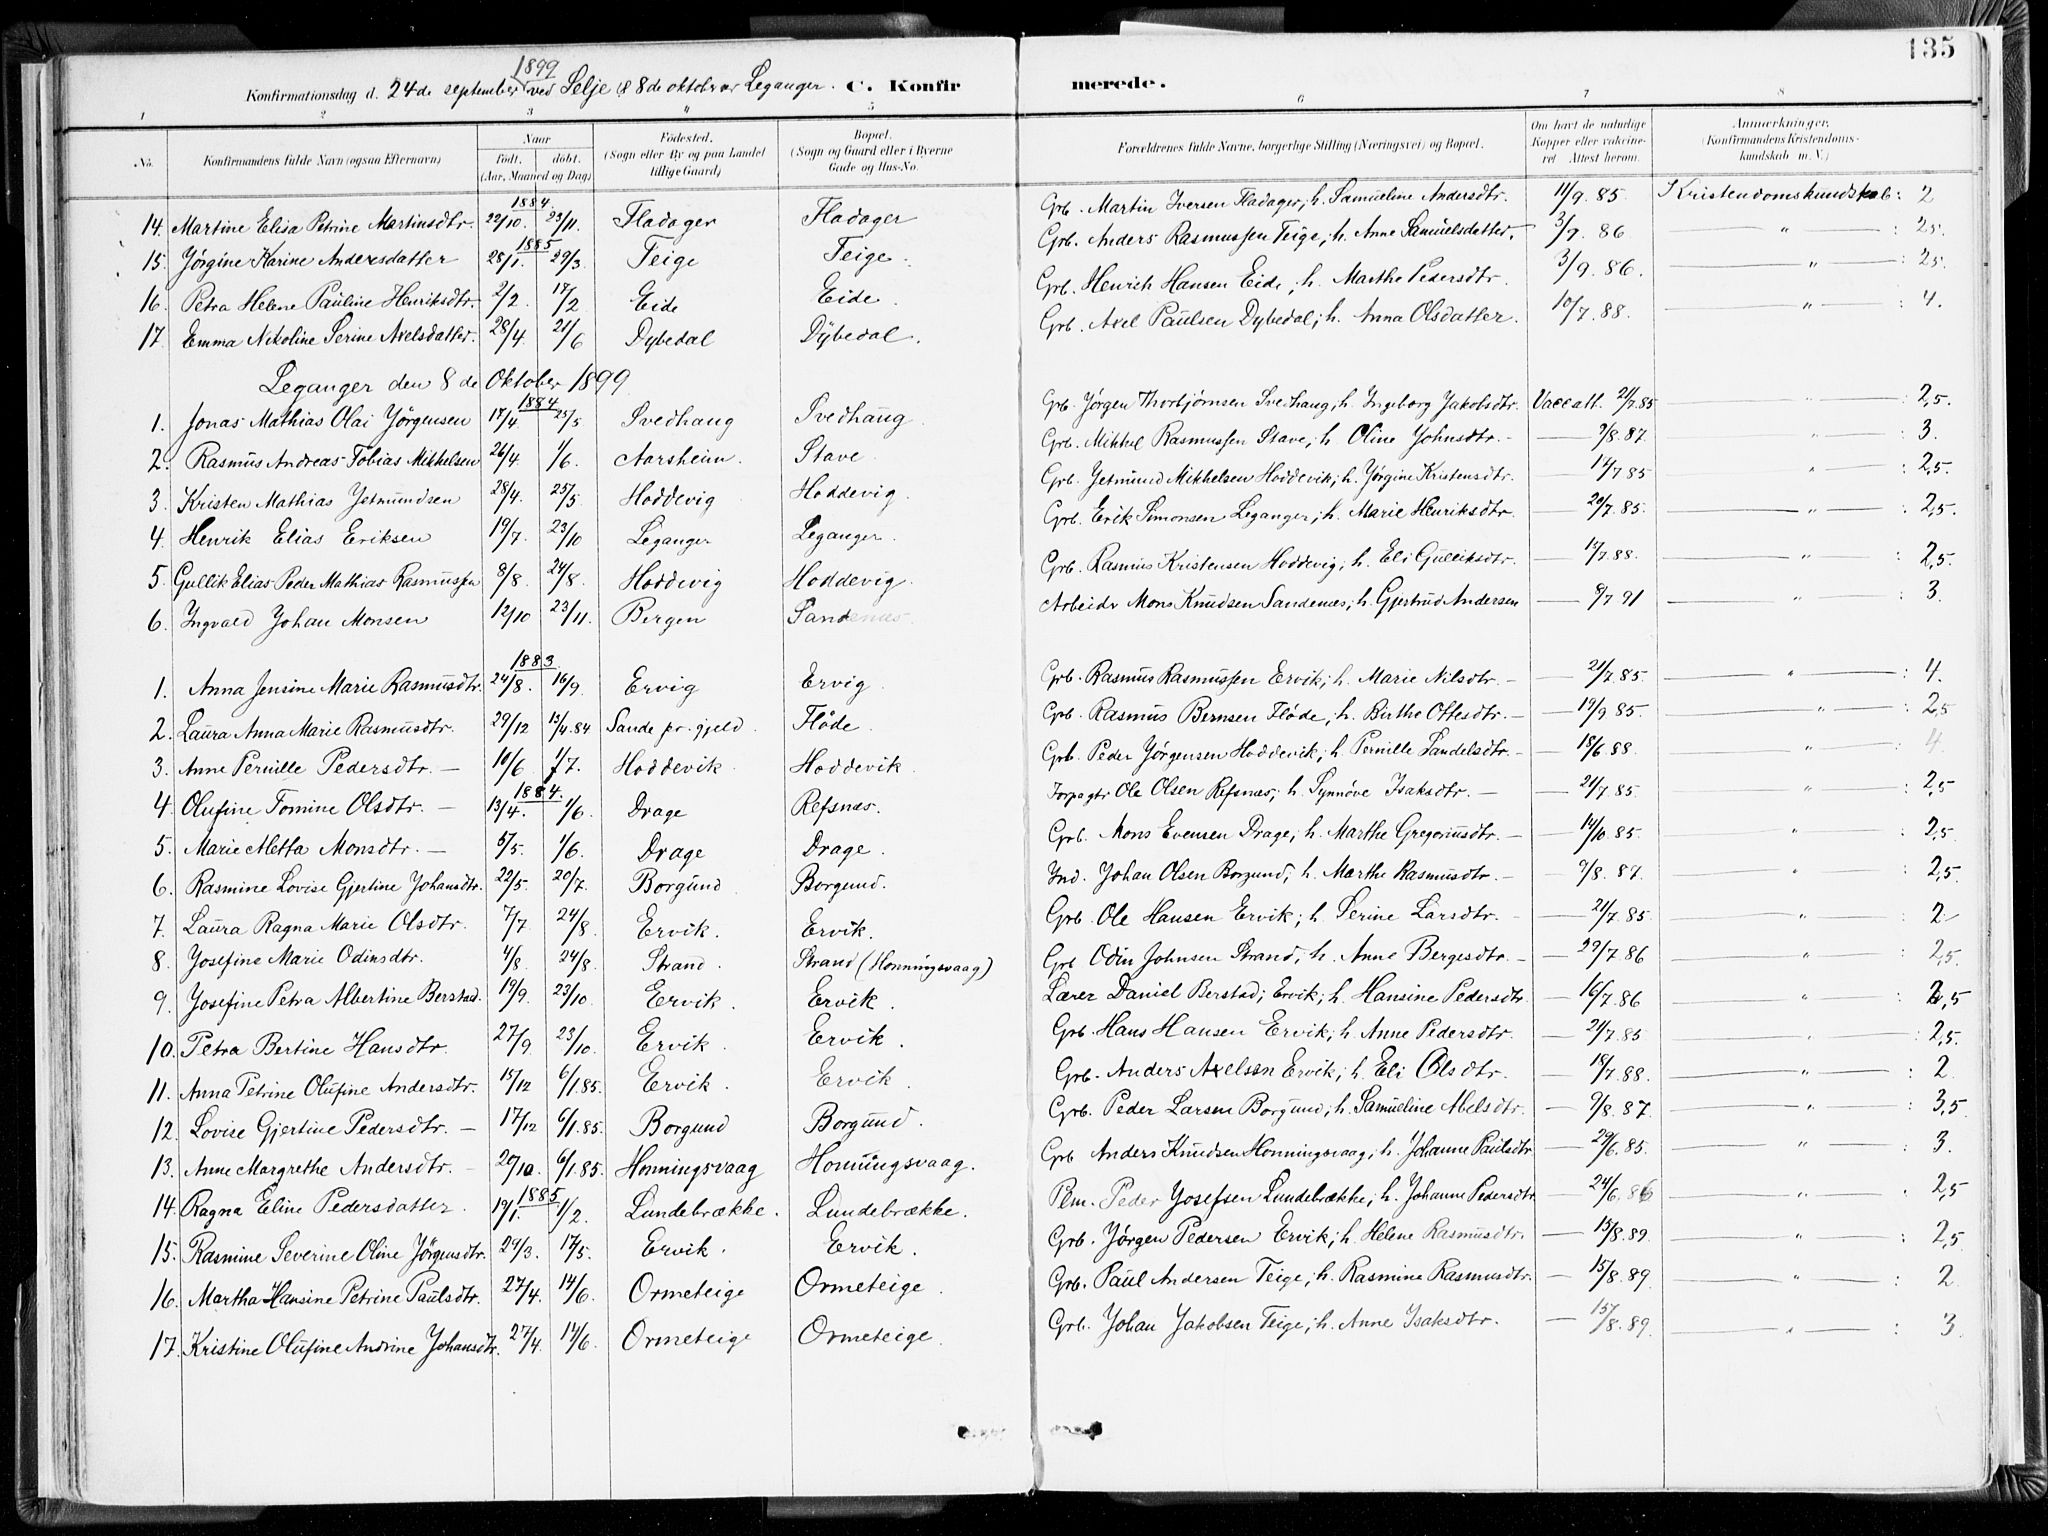 135
1899
Konfirmationsdag d. 24de september ved Selje & 8de oktober Leganger. C. Konfirmerede.
1 2 3 4 5 6 7 8
No. Konfirmandens fulde Navn (ogsaa Efternavn) Naar Født. døbt. (Aar, Maaned og Dag) Fødested. (Sogn eller By og paa Landet tillige Gaard) Bopæl. (Sogn og Gaard eller i Byerne Gade og Hus-No. Forældrenes fulde Navne, borgerlige Stilling (Næringsvei) og Bopæl. Om havt de naturlige Kopper eller vaccineret Attest herom. Anmærkninger. (Konfirmandens Kristendomskundskab m. V.)
1884
14. Martine Elisa Petrine Martinsdtr. 22/10. 23/11. Fladager Fladager Grb. Martin Iversen Fladager; h. Samueline Andersdtr. 11/9. 85. Kristendomskundskab: 2
1885
15. Jørgine Karine Andersdatter 28/1. 29/3. Teige Teige. Grb. Anders Rasmussen Teige, h. Anne Samuelsdatter. 3/7. 86 " : 2,5.
16. Petra Helene Pauline Henriksdtr. 2/2. 17/2 Eide Eide. Grb. Henrik Hansen Eide; h. Marthe Pedersdtr. 3/9. 86. " : 2,5.
17. Emma Nikoline Serine Axelsdatter. 28/4. 21/6 Dybedal Dybedal. Grb. Axel Paulsen Dybedal; h. Anna Olsdatter. 10/7. 88. " : 4.
Leganger den 8de Oktober 1899
1884
1. Jonas Mathias Olai Jørgensen 17/4. 25/5 Svedhaug Svedhaug. Grb. Jørgen Thorbjørnsen Svedhaug; h. Ingeborg Jakobsdtr. Vacc att. 21/7.85 " : 2,5.
2. Rasmus Andreas Tobias Mikkelsen 26/4. 1/6. Aarsheim. Stave Grb. Mikkel Rasmussen Stave; h. Oline Johnsdtr. — 9/8.87 " : 3.
3. Kristen Mathias Jetmundsen 28/4. 25/5 Hoddevig Hoddevig. Grb. Jetmund Mikkelsen Hoddevik; h. Jørgine Kristensdtr. — 14/7 85 " : 2,5.
4. Henrik Elias Eriksen 19/7 23/10 Leganger Leganger. Grb. Erik Simonsen Leganger; h. Marie Henriksdtr. — 20/7. 85. " : 2,5.
5. Gullik Elias Peder Mathias Rasmussen 8/8. 24/8. Hoddevig Hoddevig. Grb. Rasmus Kristensen Hoddevig; h. Eli Gulliksdtr. — 17/7.88. " : 2,5.
6. Ingvald Johan Monsen 12/10 23/11. Bergen Sandenæs. Arbeidr Mons Knudsen Sandenæs; h. Gjertrud Andersen — 8/7 91 " : 3.
1883
1. Anna Jensine Marie Rasmusdtr. 24/8. 16/9. Ervig Ervig. Grb. Rasmus Rasmussen Ervik; h. Marie Nilsdtr. — 21/7.85. " : 4.
2. Laura Anna Marie Rasmusdtr. 29/12 13/4.84 Sande pr. gjeld. Fløde. Grb. Rasmus Bernsen Fløde; h. Birthe Ottesdtr. — 19/9 85. " : 2,5
3. Anne Pernille Pedersdtr. — 10/6 1/7. Hoddevik Hoddevik. Grb. Peder Jørgensen Hoddevik; h. Pernille Sandelsdtr. — 18/6 88. " : 4.
1884.
4. Olufine Tomine Olsdtr. — 13/4. 1/6. Drage Refsnæs. Forpagtr Ole Olsen Refsnæs; h. Synnøve Isaksdtr. — 21/7.85. " : 2,5
5. Marie Aletta Monsdtr. — 5/5. 1/6. Drage Drage. Grb. Mons Evensen Drage; h. Marthe Gregoriusdtr. — 14/10 85. " : 2,5.
6. Rasmine Lovise Gjertine Johansdtr. 22/5. 20/7. Borgund Borgund. Ind. Johan Olsen Borgund; h. Marthe Rasmusdtr. — 9/8. 87. " : 2,5.
7. Laura Ragna Marie Olsdtr. 7/7 24/8. Ervik. Ervik. Grb. Ole Hansen Ervik; h. Serine Larsdtr. — 21/7.85. " : 2
8. Josefine Marie Odinsdtr. 4/8. 24/8. Strand. Strand (Honningsvaag) Grb Odin Johnsen Strand; h. Anne Bergesdtr. — 29/7.86 " : 2,5.
9. Josefine Petra Albertine Berstad. 19/9. 23/10. Ervik. Ervik. Lærer Daniel Berstad; Ervik; h. Hansine Pedersdtr. — 16/7.86 " : 2,5
10. Petra Bertine Hansdtr. 27/9. 23/10. Ervik. Ervik. Grb. Hans Hansen Ervik; h. Anne Pedersdtr. — 21/7.85 " : 2,5.
11. Anna Petrine Olufine Andersdtr. 15/12 6/1.85. Ervik. Ervik. Grb. Anders Axelsen Ervik; h. Eli Olsdtr. — 19/7.88. " : 2
12. Lovise Gjertine Pedersdtr. — 17/12 6/1.85. Borgund Borgund. Grb. Peder Larsen Borgund; h. Samueline Abelsdtr. — 9/8.87. " : 3,5
13. Anne Margrethe Andersdtr. 20/10. 6/1.85. Honningsvaag Honningsvaag. Grb Anders Knudsen Honningsvaag; h. Johanne Paulsdtr — 29/6.85. " : 3.
1885
14. Ragna Eline Pedersdatter. 19/1. 1/2. Lundebrække. Lundebrække. Pem. Peder Josefsen Lundebrække; h. Johanne Pedersdtr — 24/6.86 " : 2,5
15. Rasmine Severine Oline Jørgensdtr. 29/3. 17/5. Ervik. Ervik. Grb. Jørgen Pedersen Ervik; h. Helene Rasmusdtr. — 15/8.89. " : 2,5.
16. Martha Hansine Petrine Paulsdtr. 27/4. 14/6. Ormeteige Ormeteige. Grb. Paul Andersen Teige; h. Rasmine Rasmusdtr. — 15/8.89 " : 2
17. Kristine Olufine Andrine Johansdtr. 27/4. 14/6. Ormeteige Ormeteige. Grb. Johan Jakobsen Teige; h. Anne Isaksdtr. — 15/8.89. " : 3